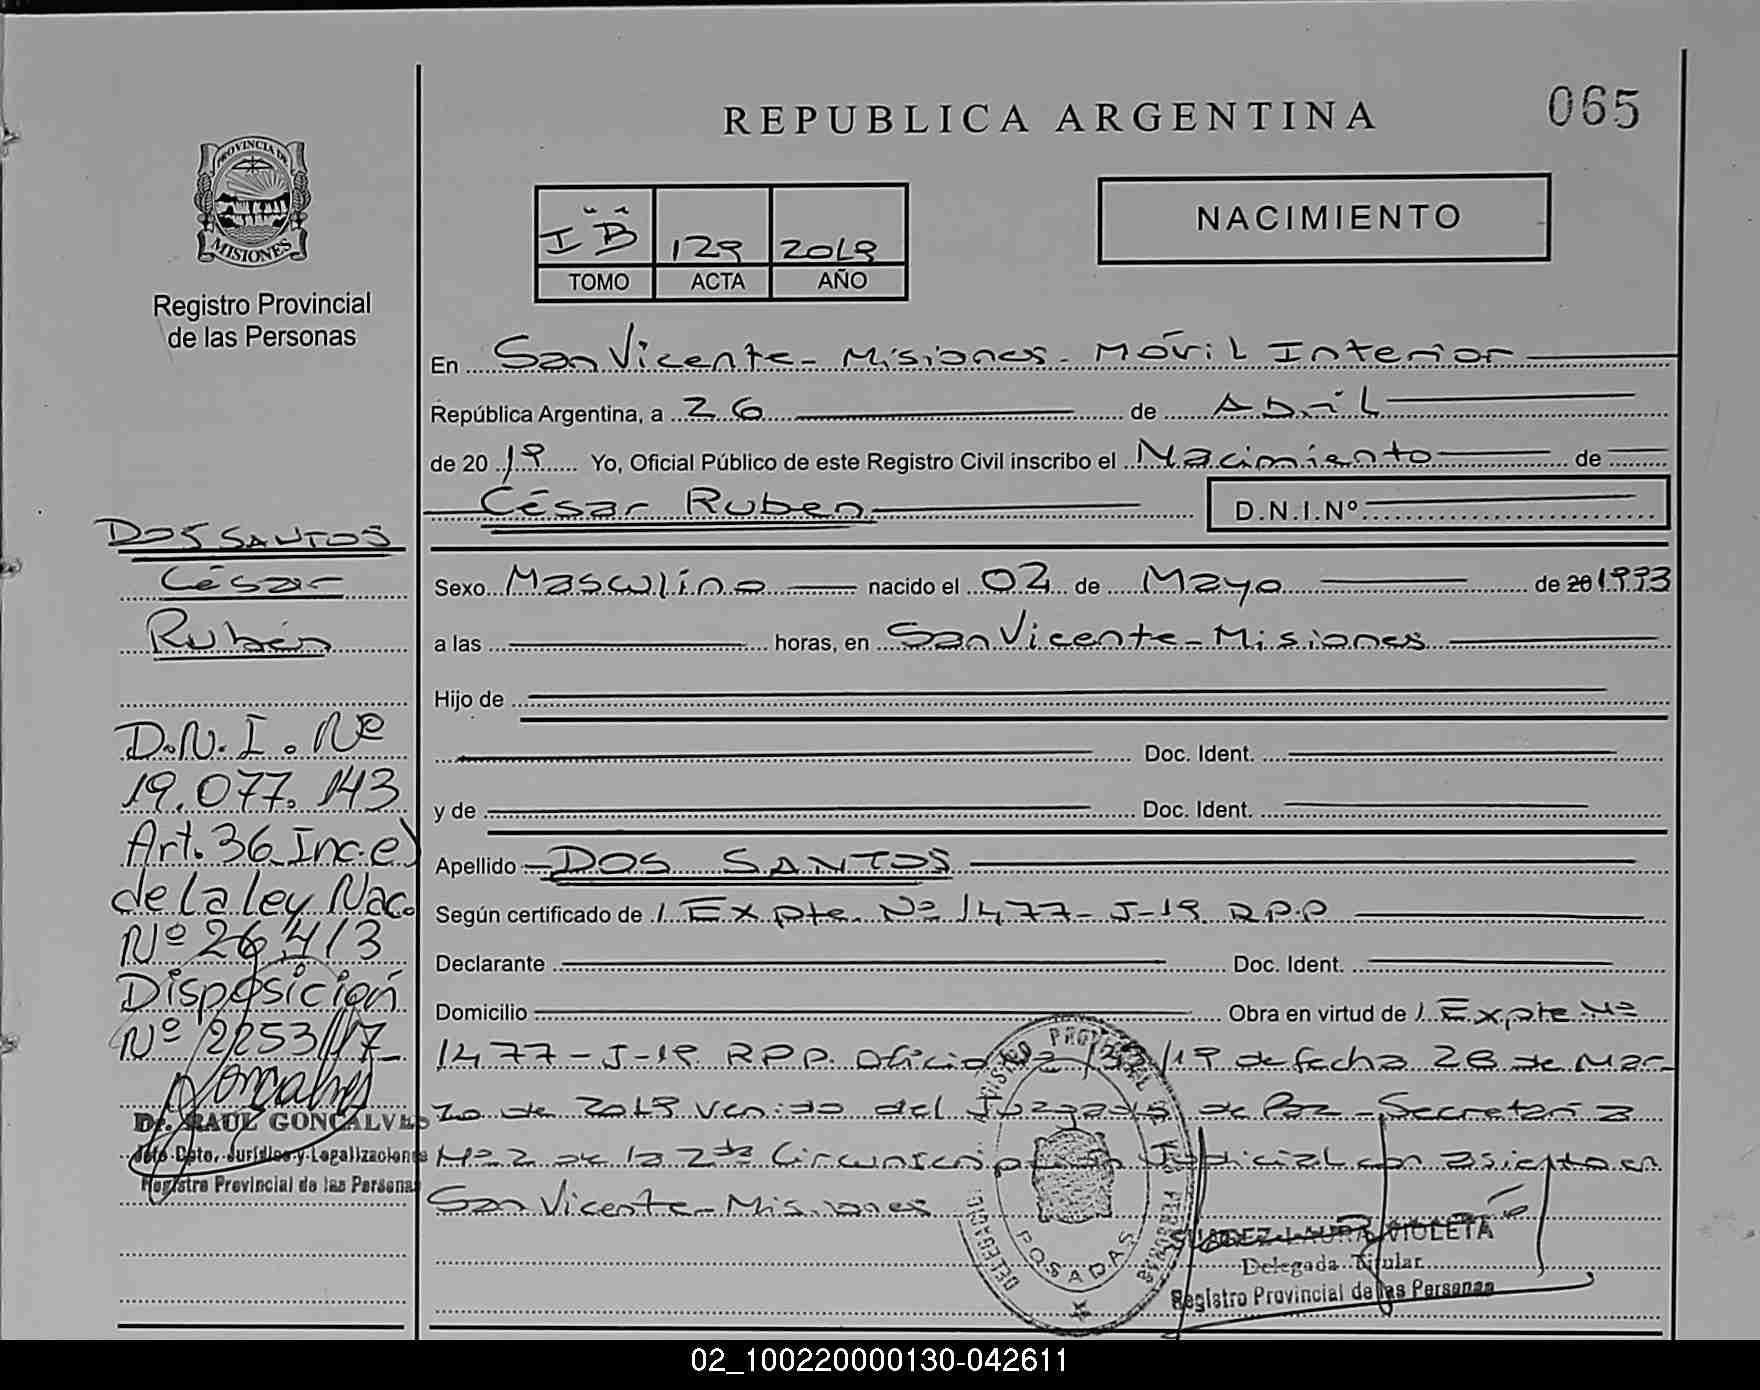 REPUBLICA ARGENTINA
065
PROVINCIA DE
MISIONES
Registro Provincial
de las Personas
I B 129 2019
TOMO ACTA AÑO
NACIMIENTO
En San Vicente - Misiones - Móvil Interior
República Argentina, a 26 de Abril
de 2019 Yo, Oficial Público de este Registro Civil inscribo el Nacimiento de
César Ruben D.N.I.Nº
DOS SANTOS
César
Rubén
D.N.I. Nº
19.077.143
Art. 36 Inc. e)
de la ley Nac.
Nº 26.413
Disposición
Nº 2253/17
Dr. RAUL GONCALVES
Jefe Dpto. Jurídico y Legalizaciones
Registro Provincial de las Personas
Sexo Masculino nacido el 02 de Mayo de 20 1993
a las horas, en San Vicente - Misiones
Hijo de
Doc. Ident.
y de Doc. Ident.
Apellido DOS SANTOS
Según certificado de / Expte. Nº 1477-J-19 R.P.P
Declarante Doc. Ident.
Domicilio Obra en virtud de / Expte Nº
1477-J-19 R.P.P. Oficio /19 de fecha 28 de Mar-
zo de 2019 venido del Juzgado de Paz - Secretaría
Nº 2 de la 2da Circunscripción Judicial con asiento en
San Vicente - Misiones
POSADAS
SUAREZ LAURA VIOLETA
Delegada Titular
Registro Provincial de las Personas
02_100220000130-042611